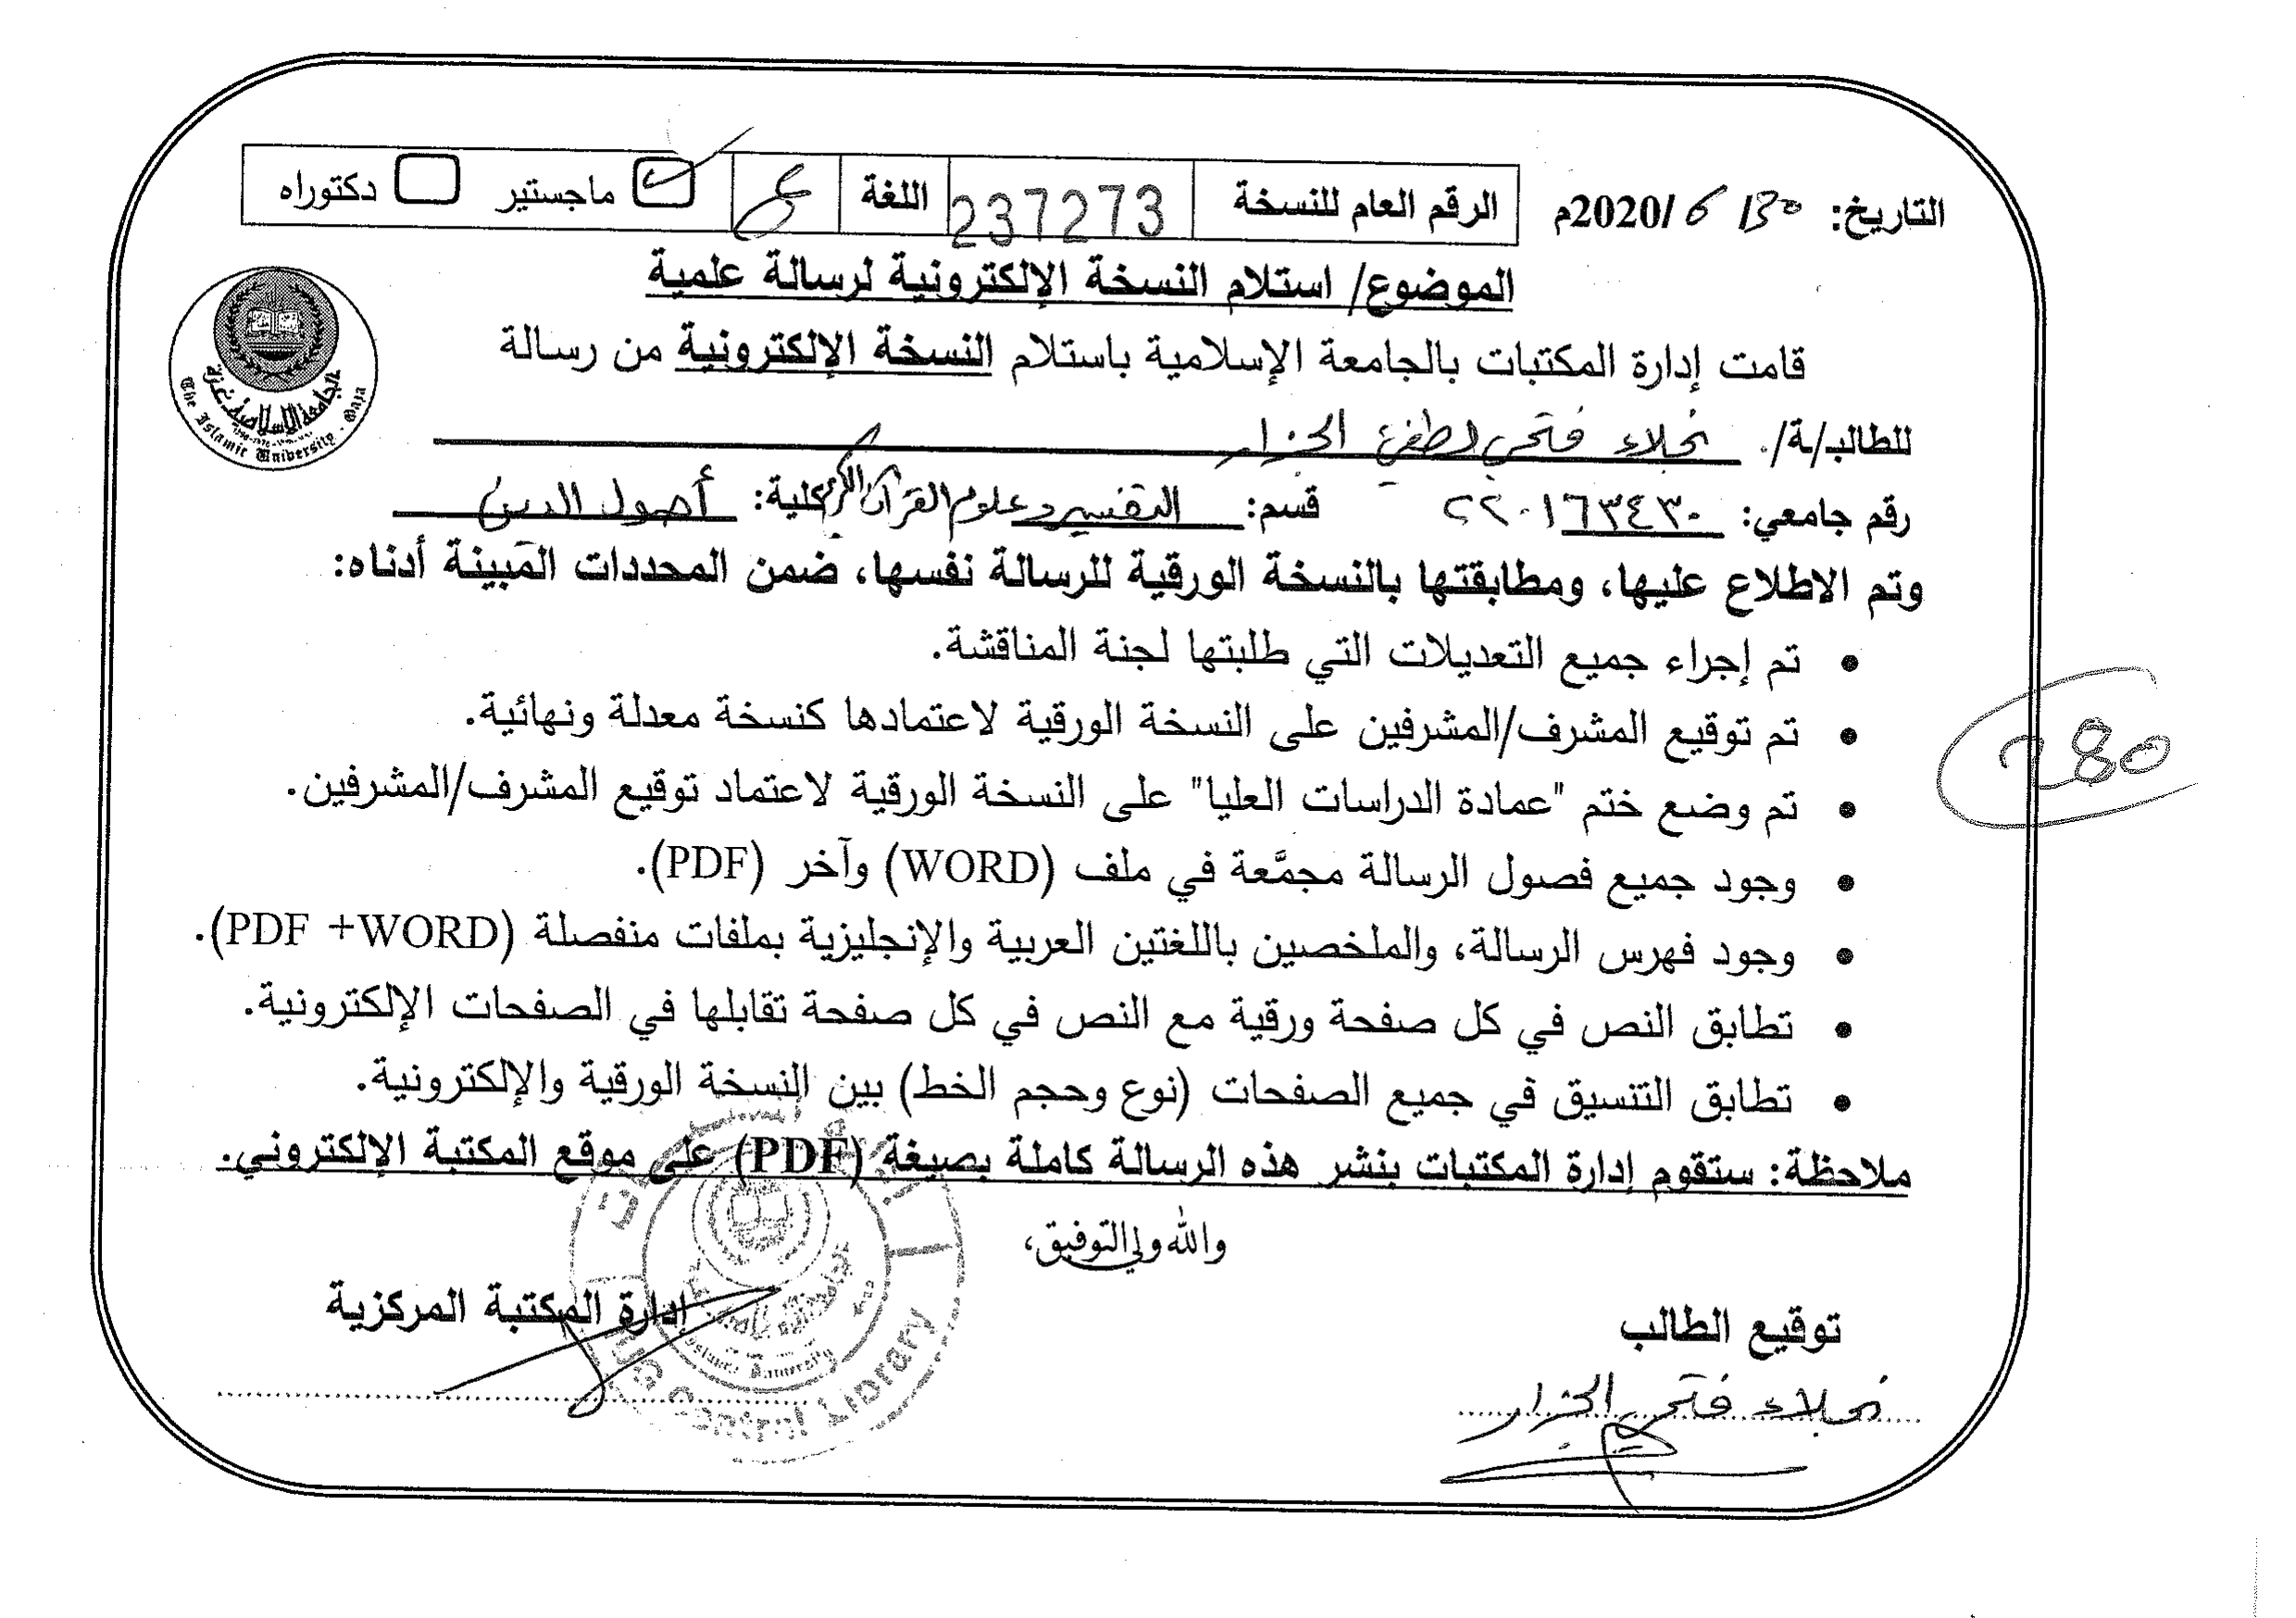 التاريخ: 30/ 6 /2020م الرقم العام للنسخة 237273 اللغة ع ماجستير دكتوراه
الموضوع/ استلام النسخة الإلكترونية لرسالة علمية
قامت إدارة المكتبات بالجامعة الإسلامية باستلام النسخة الإلكترونية من رسالة
للطالب/ة/ نجلاء فتحي لطفي الجزار
رقم جامعي: ٢٢٠١٦٣٤٣٠ قسم: التفسير وعلوم القرآن الكريم كلية: أصول الدين
وتم الاطلاع عليها، ومطابقتها بالنسخة الورقية للرسالة نفسها، ضمن المحددات المبينة أدناه:
• تم إجراء جميع التعديلات التي طلبتها لجنة المناقشة.
• تم توقيع المشرف/المشرفين على النسخة الورقية لاعتمادها كنسخة معدلة ونهائية.
• تم وضع ختم "عمادة الدراسات العليا" على النسخة الورقية لاعتماد توقيع المشرف/المشرفين.
• وجود جميع فصول الرسالة مجمَّعة في ملف (WORD) وآخر (PDF).
• وجود فهرس الرسالة، والملخصين باللغتين العربية والإنجليزية بملفات منفصلة (PDF +WORD).
• تطابق النص في كل صفحة ورقية مع النص في كل صفحة تقابلها في الصفحات الإلكترونية.
• تطابق التنسيق في جميع الصفحات (نوع وحجم الخط) بين النسخة الورقية والإلكترونية.
ملاحظة: ستقوم إدارة المكتبات بنشر هذه الرسالة كاملة بصيغة (PDF) على موقع المكتبة الإلكتروني.
والله ولي التوفيق،
توقيع الطالب إدارة المكتبة المركزية
نجلاء فتحي الجزار
280
الجامعة الإسلامية غزة
The Islamic University - Gaza
Library